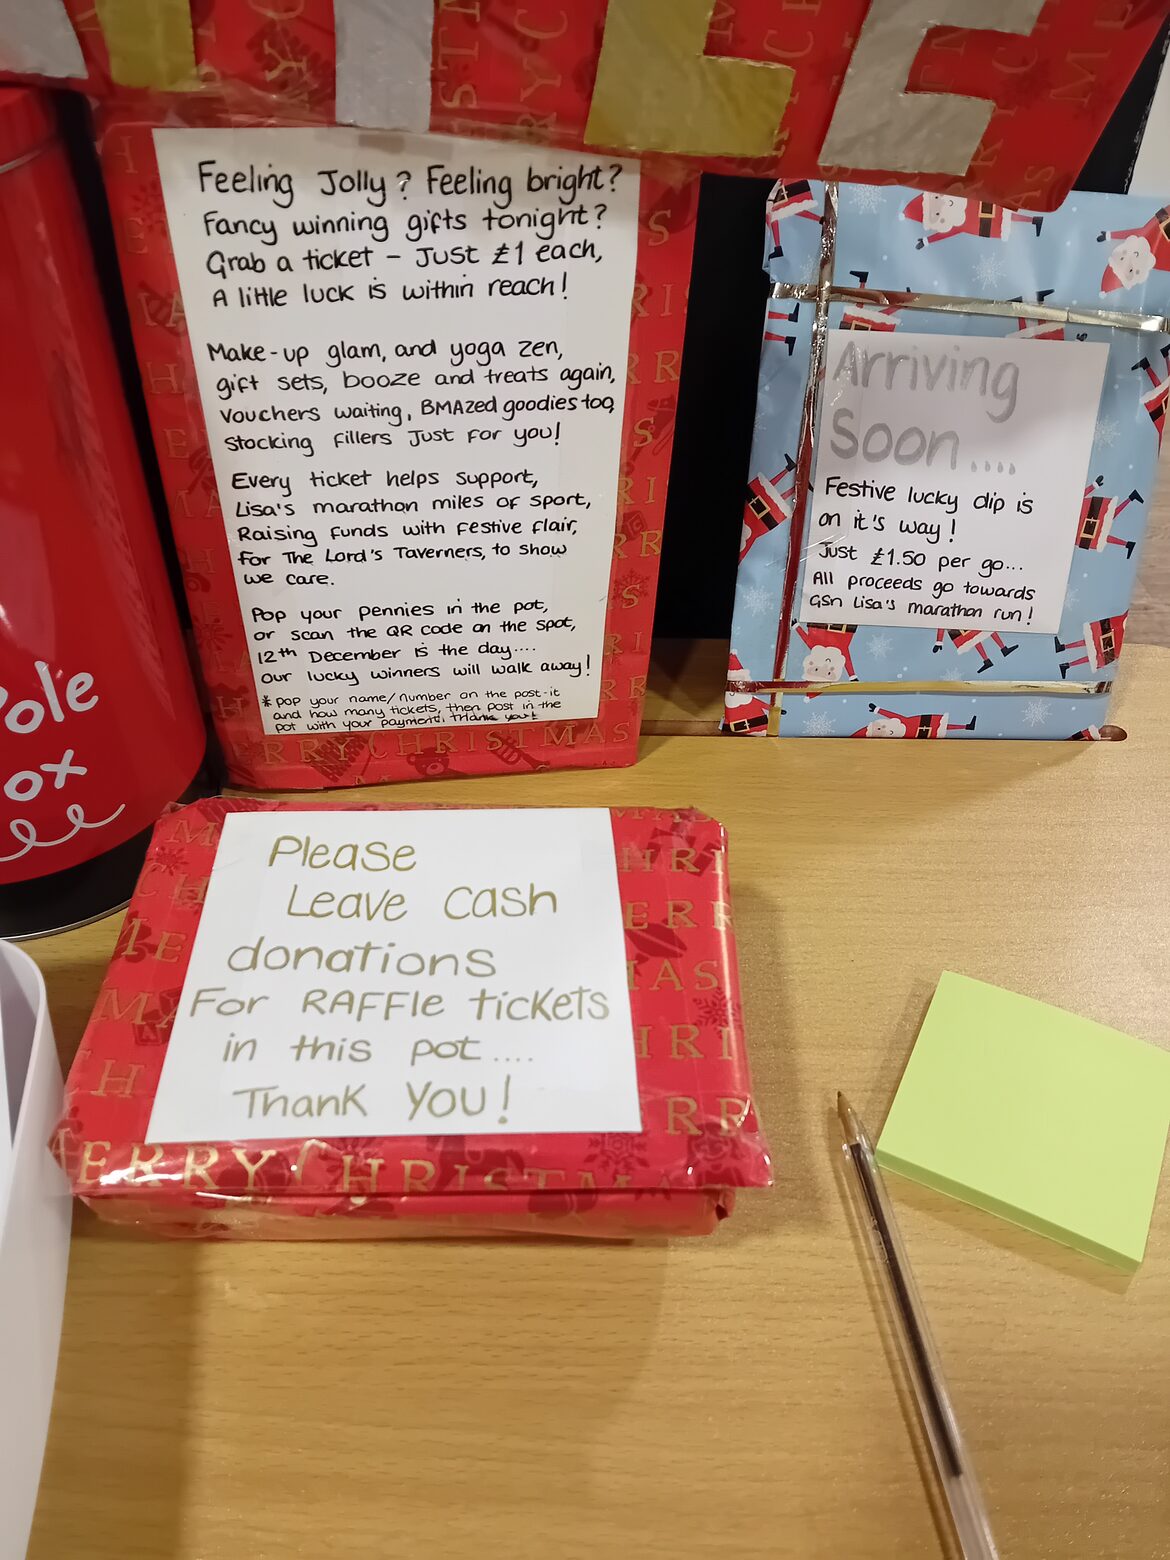 Feeling Jolly? Feeling bright?
Fancy winning gifts tonight?
Grab a ticket - Just £1 each,
A little luck is within reach!
Make-up glam, and yoga zen,
gift sets, booze and treats again,
Vouchers waiting, BMAzed goodies too,
Stocking fillers Just for you!
Every ticket helps support,
Lisa's marathon miles of sport,
Raising funds with festive flair,
for The Lord's Taverners, to show
we care.
Pop your pennies in the pot,
or scan the QR code on the spot,
12th December is the day....
our lucky winners will walk away!
* Pop your name/number on the post-it
and how many tickets, then post in the
pot with your payment. Thank you!
Arriving
Soon....
Festive lucky dip is
on it's way!
Just £1.50 per go...
All proceeds go towards
GSn Lisa's marathon run!
Pole
ox
Please
Leave cash
donations
For RAFFle tickets
in this pot....
Thank YOU!
MERRY CHRISTMAS